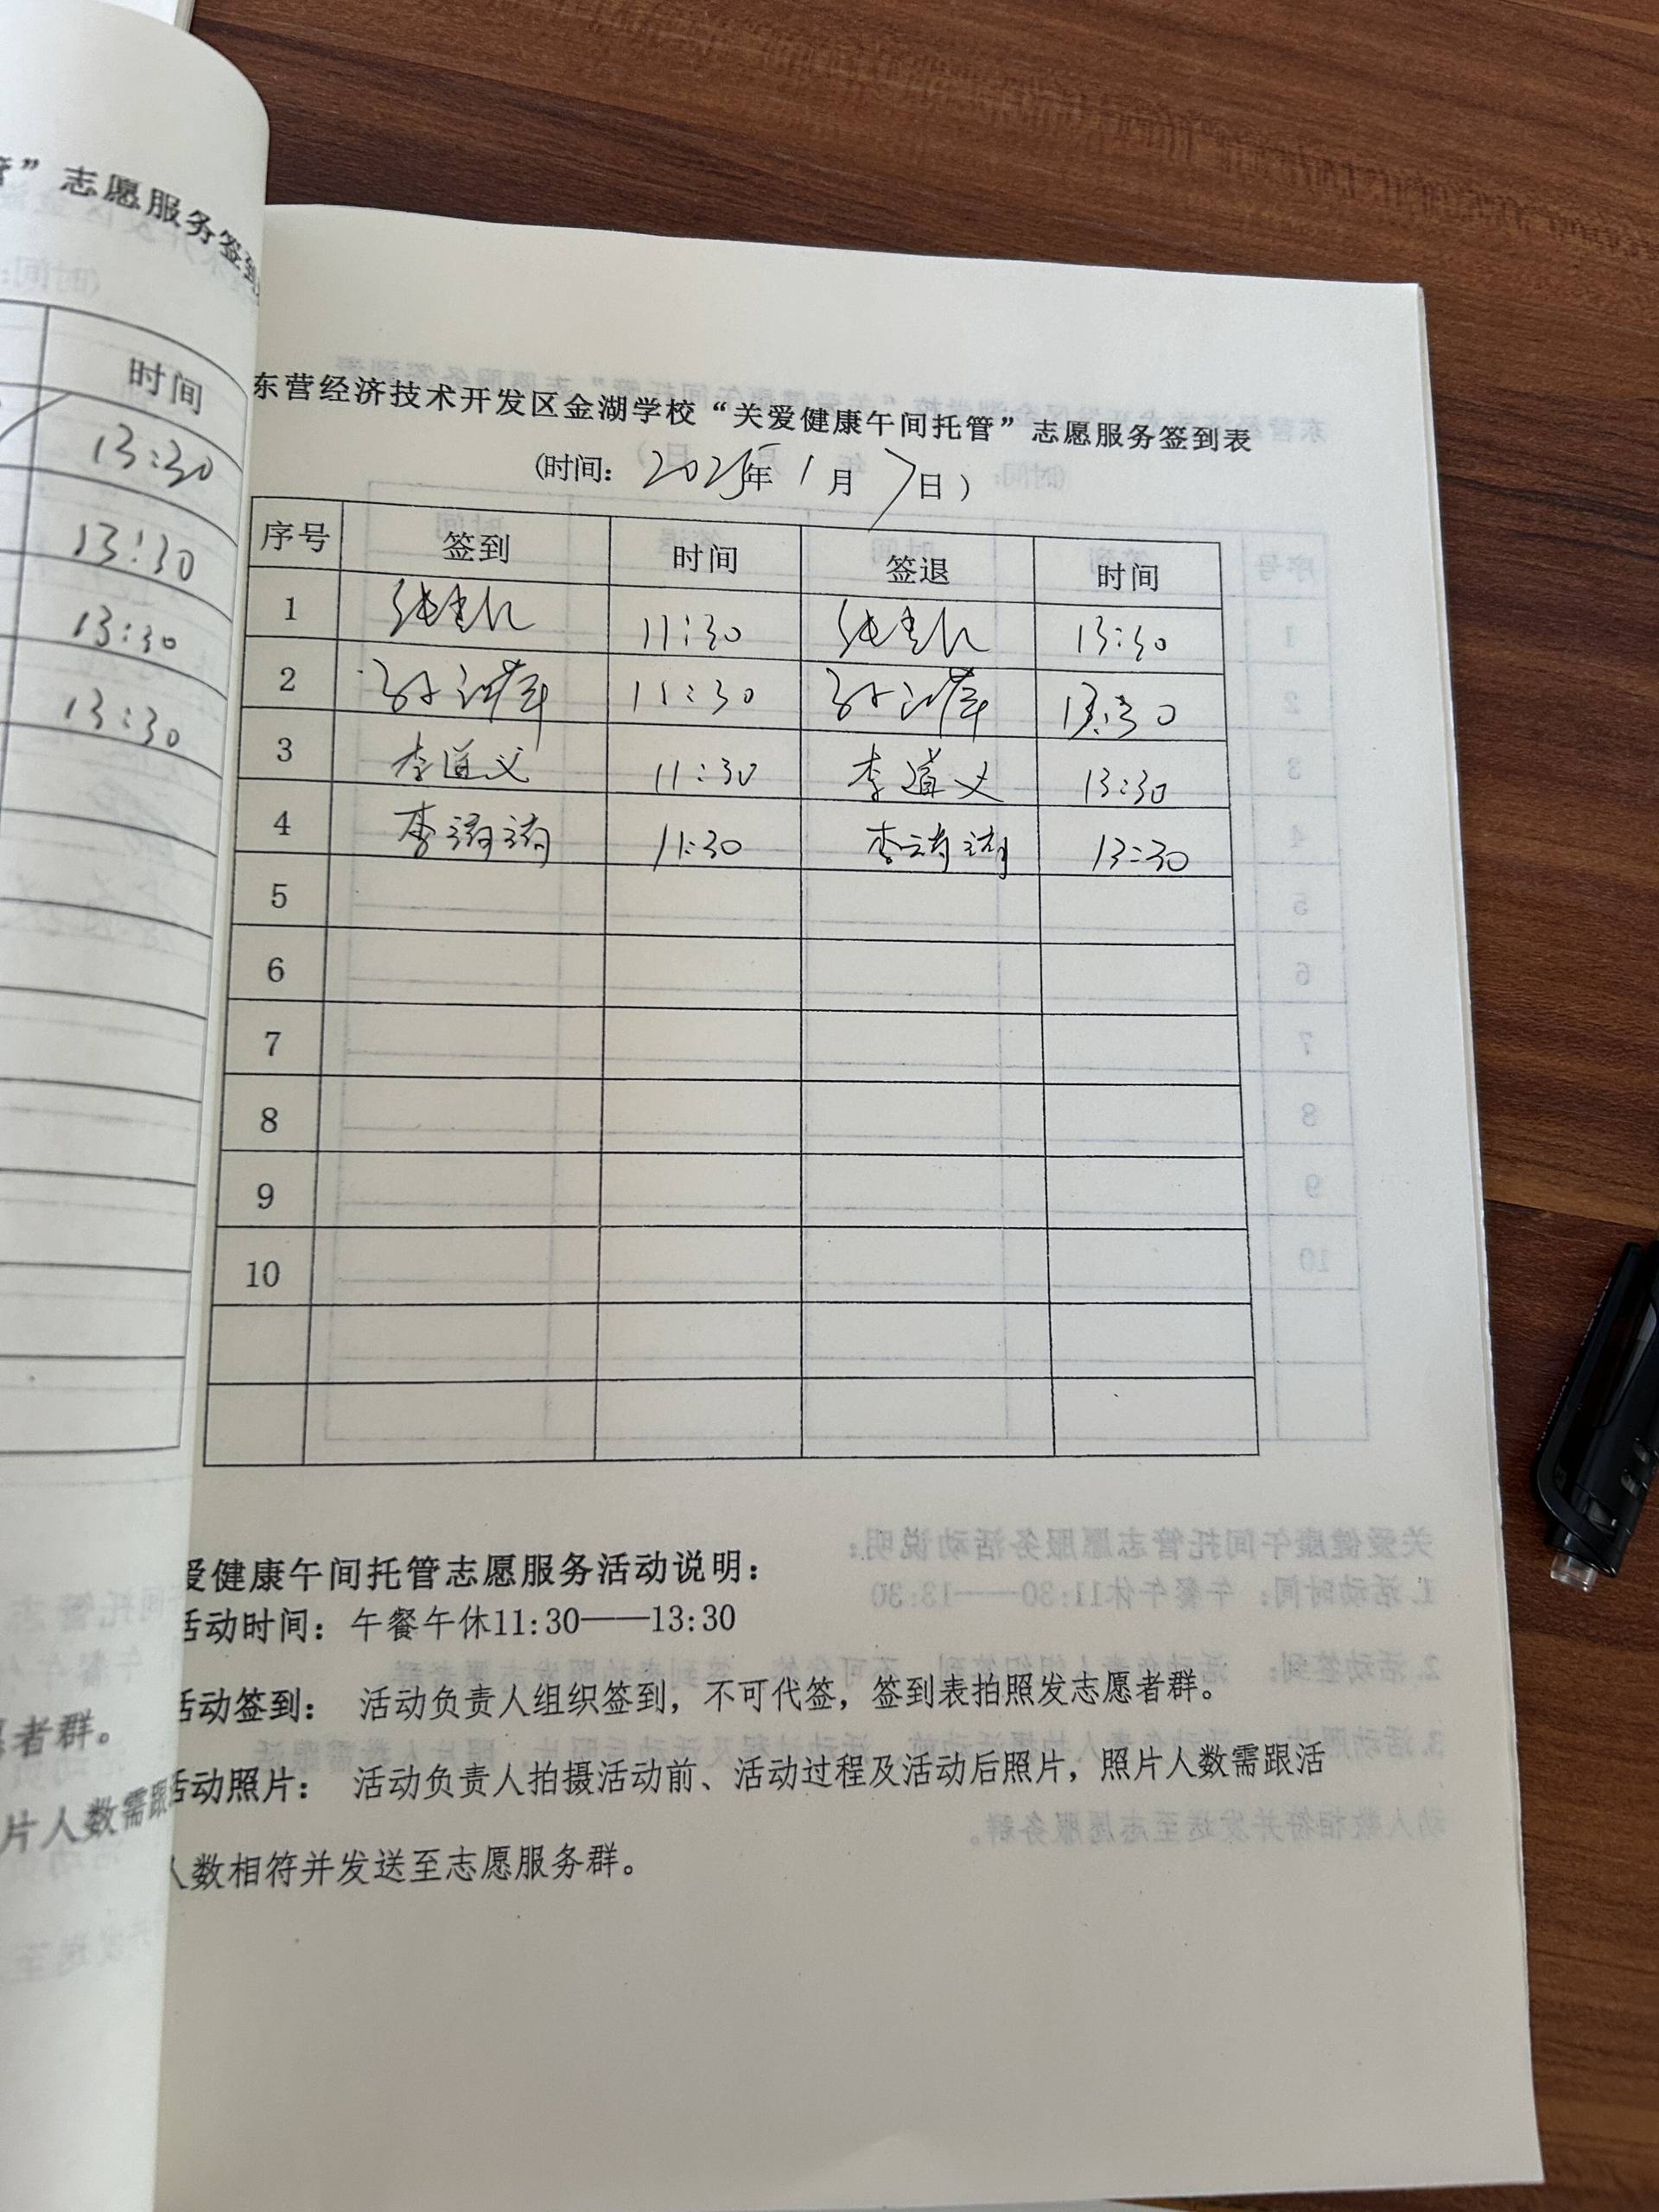 志愿服务签到
时间
13:30
13:30
13:30
13:30
愿者群。
片人数需跟
东营经济技术开发区金湖学校“关爱健康午间托管”志愿服务签到表
(时间: 2025年 1月 7日)
序号 签到 时间 签退 时间
1 11:30 13:30
2 11:30 13:30
3 李道义 11:30 李道义 13:30
4 李 11:30 李 13:30
5
6
7
8
9
10
爱健康午间托管志愿服务活动说明:
活动时间: 午餐午休11:30——13:30
活动签到: 活动负责人组织签到, 不可代签, 签到表拍照发志愿者群。
活动照片: 活动负责人拍摄活动前、活动过程及活动后照片, 照片人数需跟活
人数相符并发送至志愿服务群。